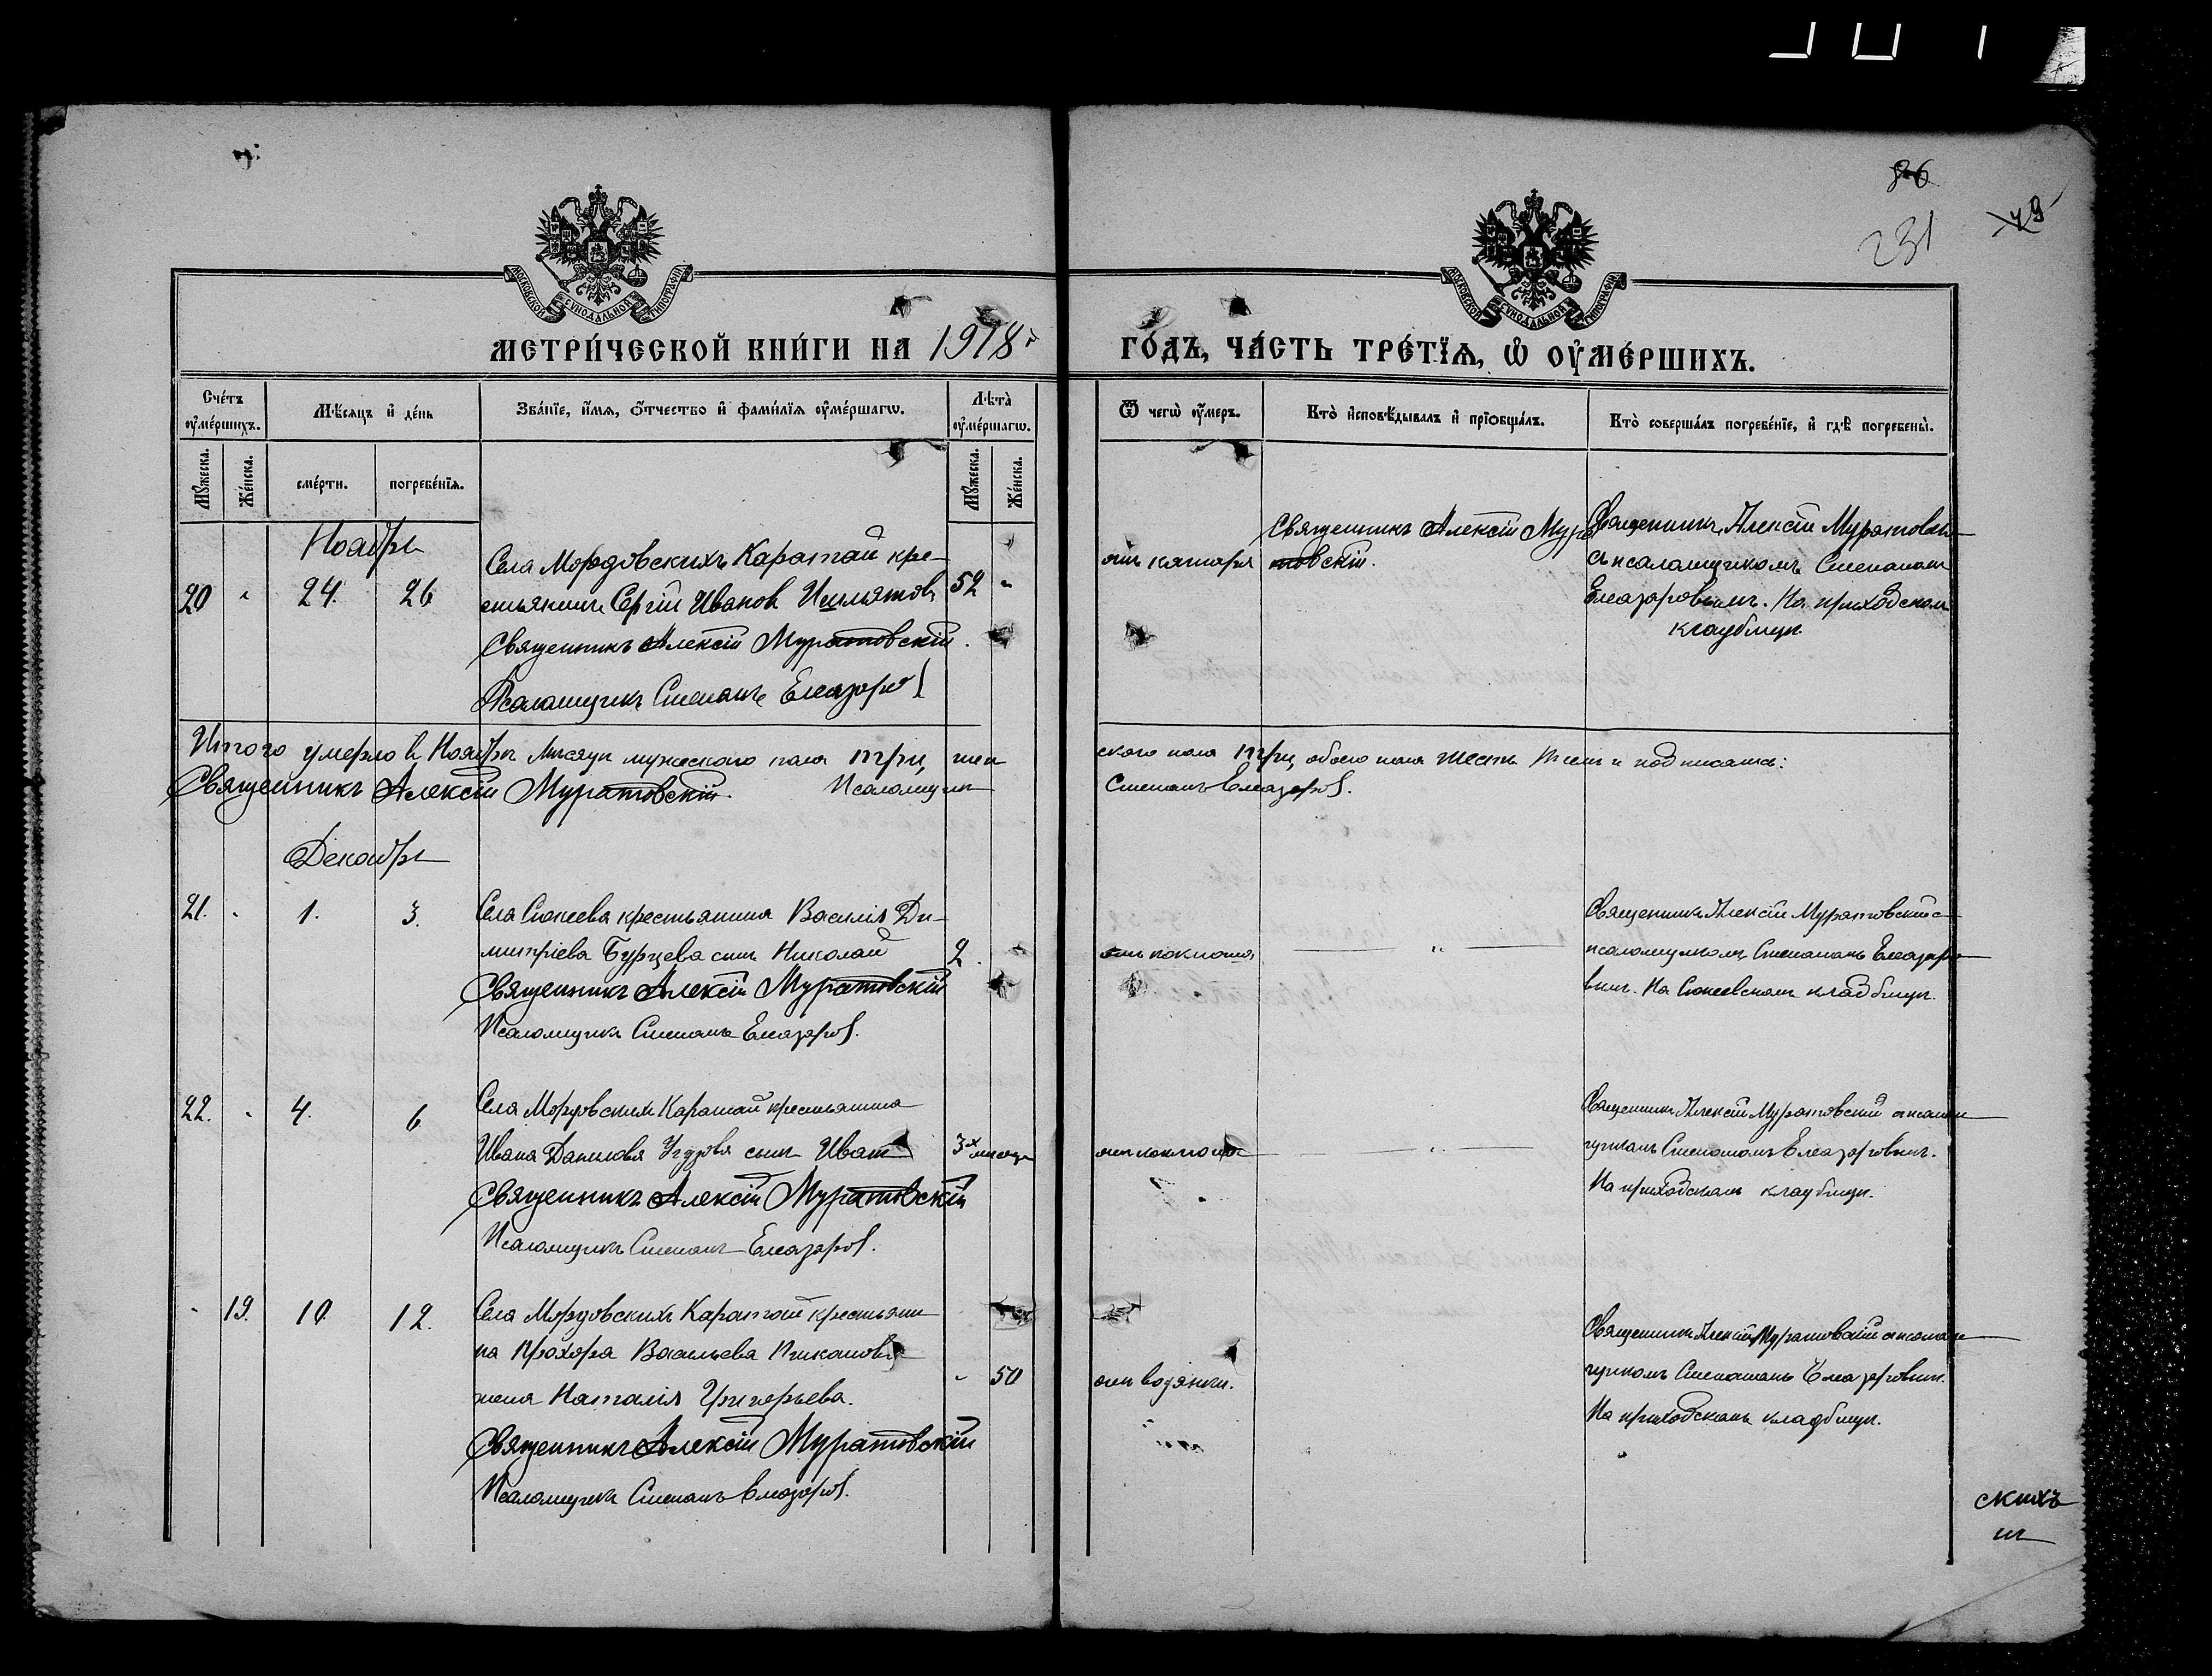 86
49
231
МОСКОВСКОЙ СѴНОДАЛЬНОЙ ТИПОГРАФІИ
МОСКОВСКОЙ СѴНОДАЛЬНОЙ ТИПОГРАФІИ
МЕТРИ́ЧЕСКОЙ КНИ́ГИ НА 1918 г
ГО́ДЪ, ЧА́СТЬ ТРЕ́ТЇѦ, Ѡ҆ ОУ҆МЕ́РШИХЪ.
Сче́тъ оу҆ме́ршихъ.
Мѣ́сѧцъ и҆ де́нь
Зва́нїе, и҆́мѧ, ѻ҆́тчество и҆ фами́лїѧ оу҆ме́ршагѡ.
Лѣ́та оу҆ме́ршагѡ.
Ѿ чегѡ̀ оу҆́меръ.
Кто̀ и҆сповѣ́дывалъ и҆ прїѡбща́лъ.
Кто̀ соверша́лъ погребе́нїе, и҆ гдѣ̀ погребены̀.
Мꙋ́жеска.
Же́нска.
сме́рти.
погребе́нїѧ.
Мꙋ́жеска.
Же́нска.
Ноябрь
20 " 24. 26
Села Мордовскихъ Каратай кре-
стьянинъ Сергій Иванов
52 "
Священникъ Алексій Муратовскій.
Псаломщикъ Степанъ Елеазаров
отъ катара
Священникъ Алексій Мура
товскій.
Священникъ Алексій Муратовскій
съ псаломщикомъ Степаномъ
Елеазаровымъ. На приходскомъ
кладбищѣ
Итого умерло въ Ноябрѣ мѣсяцѣ мужескаго пола три, жен
скаго пола три, обоего пола шесть подписались:
Священникъ Алексій Муратовскій. Псаломщикъ
Степанъ Елеазаров.
Декабрь
21. " 1. 3.
Села Сюкеева крестьянина Василія Ди-
митріева Бурцева сынъ Николай
2. "
Священникъ Алексій Муратовскій
Псаломщикъ Степанъ Елеазаров.
отъ коклюша
"
Священникъ Алексій Муратовскій с
псаломщикомъ Степаномъ Елеазаро
вымъ. На Сюкеевскомъ кладбищѣ.
22. " 4. 6
Села Мордовскихъ Каратай крестьянина
Ивана Данилова сынъ Иванъ
3х месяц
Священникъ Алексій Муратовскій
Псаломщикъ Степанъ Елеазаров.
отъ коклюша
"
Священникъ Алексій Муратовскій с псалом
щикомъ Степаномъ Елеазаровымъ.
На приходскомъ кладбищѣ.
" 19. 10 12.
Села Мордовскихъ Каратай крестьяни
на Прохора Васильева
жена Наталія Григорьева.
" 50
Священникъ Алексій Муратовскій
Псаломщикъ Степанъ Елеазаров.
отъ водянки.
Священникъ Алексій Муратовскій с псалом
щикомъ Степаномъ Елеазаровымъ.
На приходскомъ кладбищѣ.
скихъ